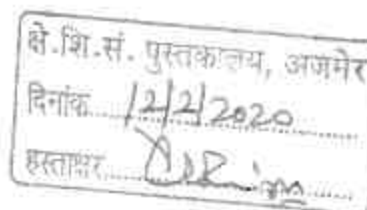 क्षे.शि.सं. पुस्तकालय, अजमेर
दिनांक 12/2/2020
हस्ताक्षर